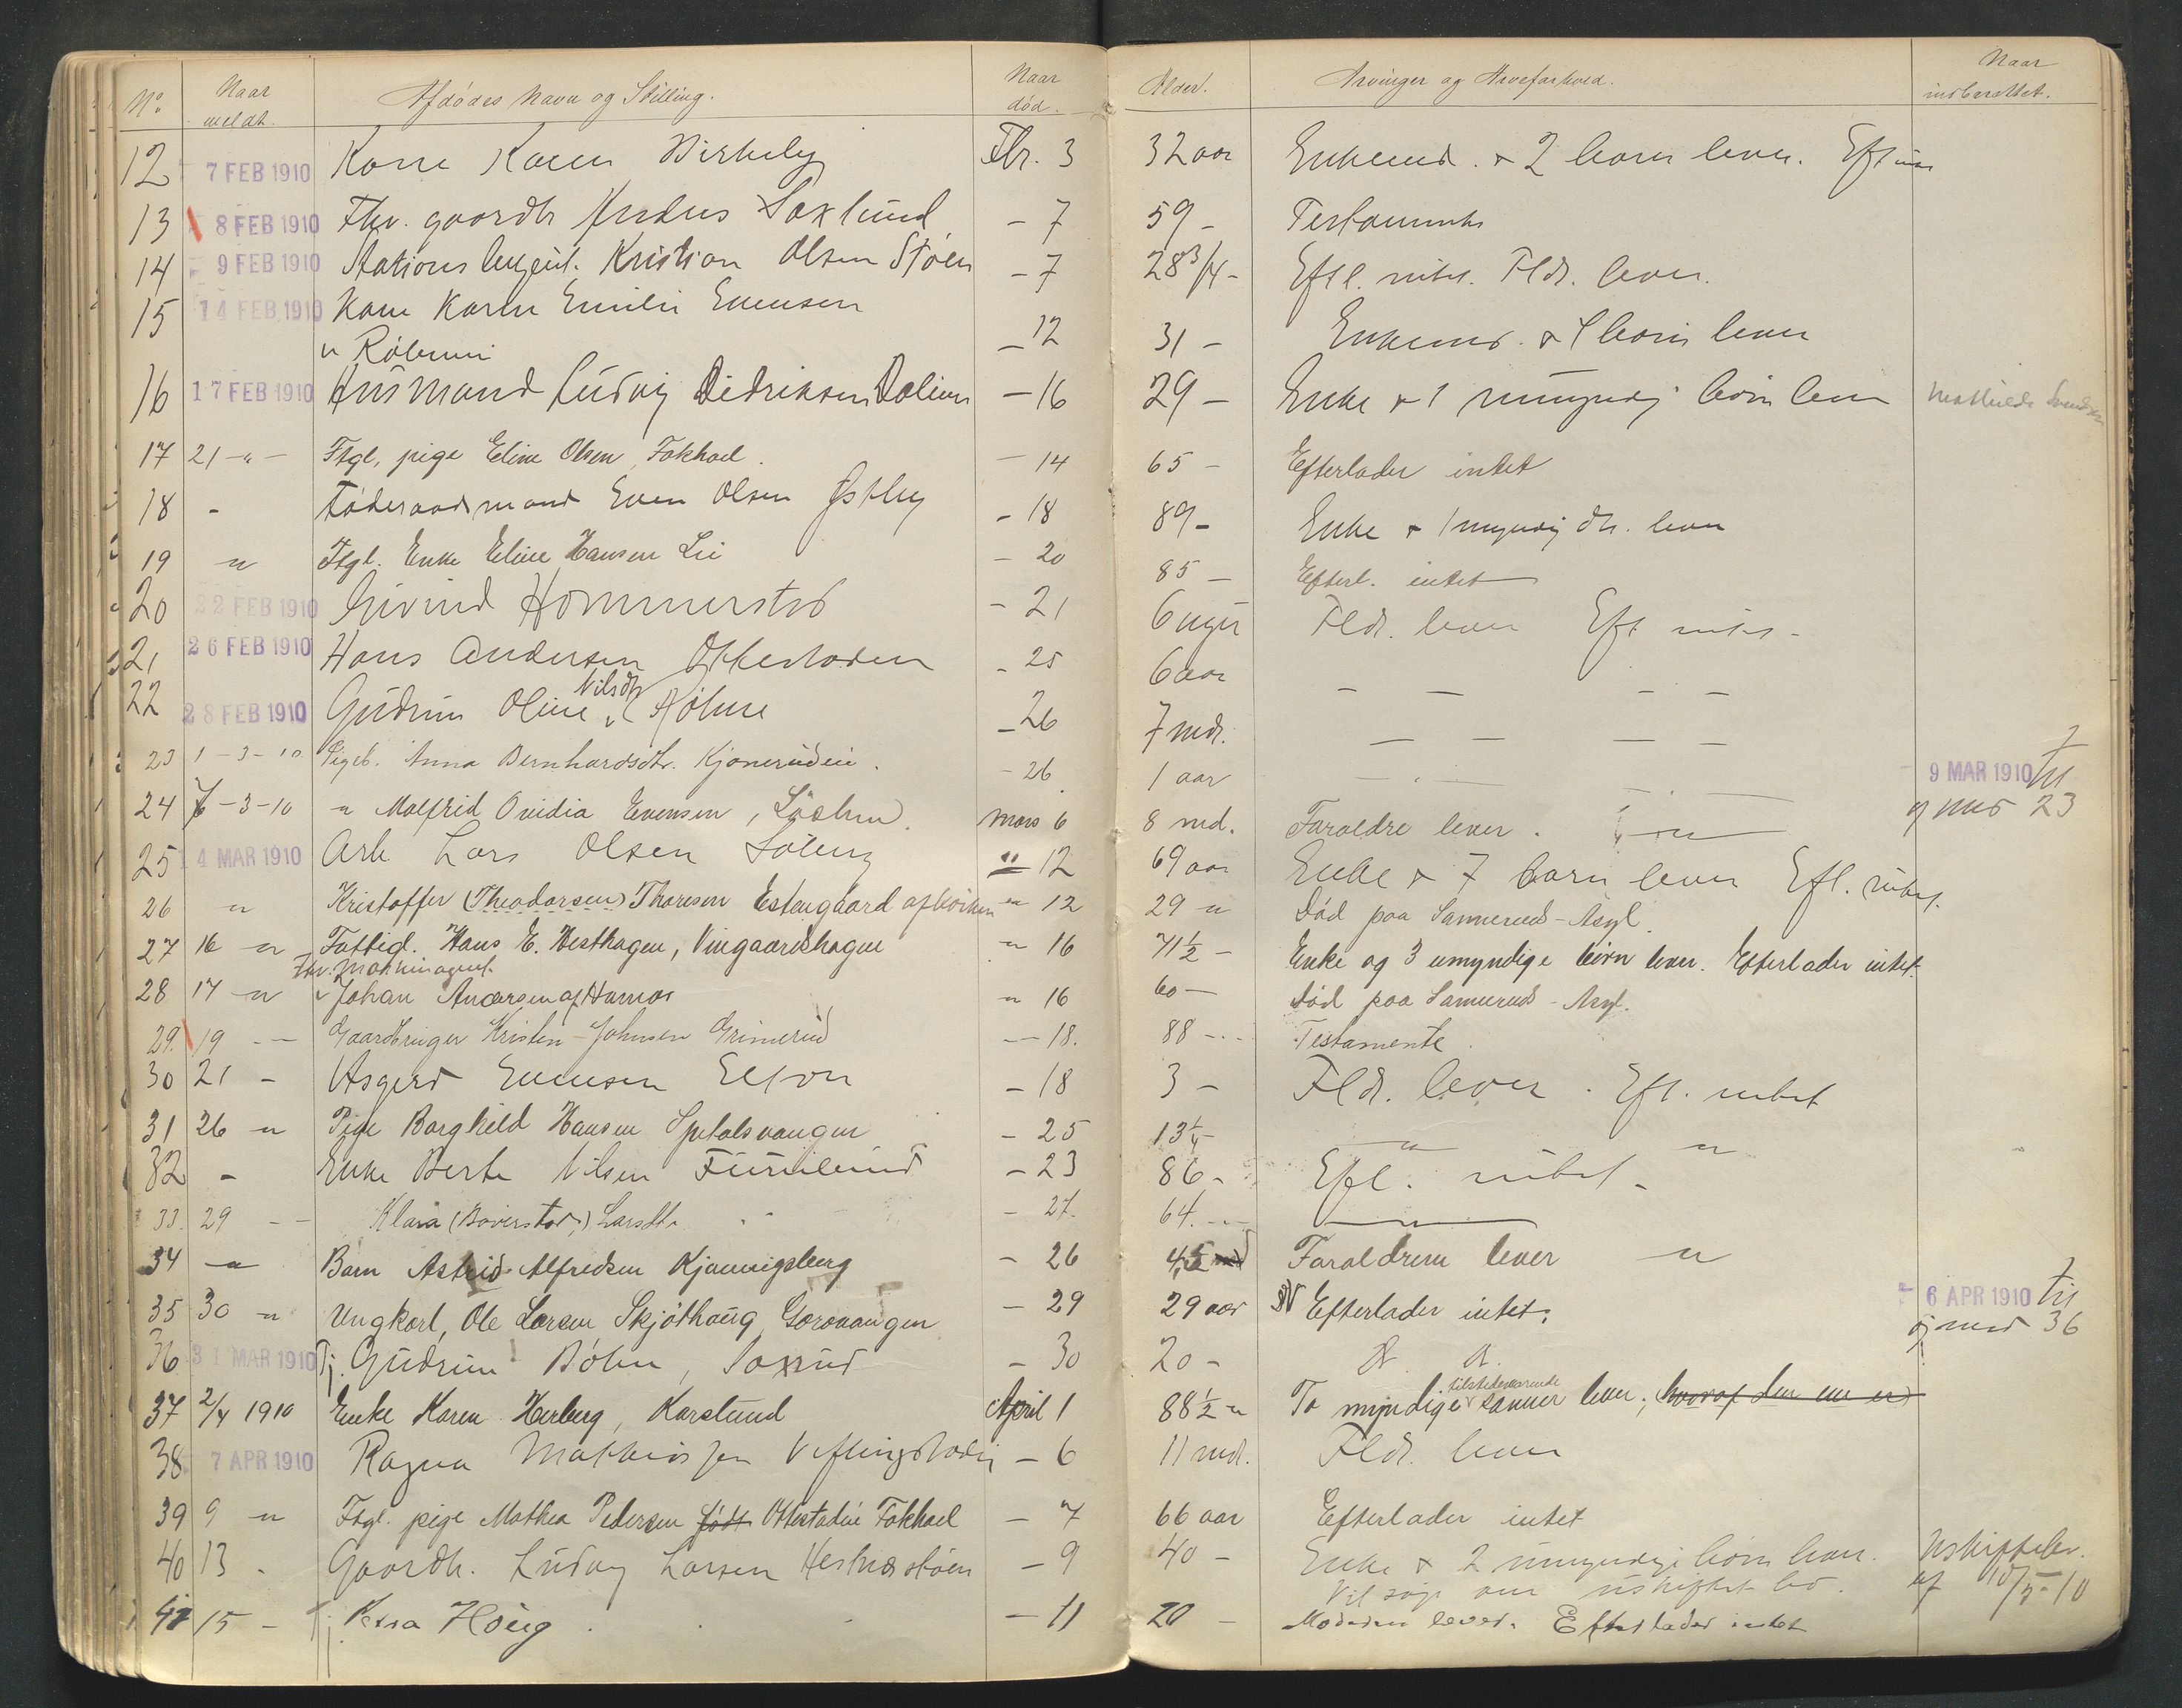 No. Naar meldt. Afdødes Navn og Stilling. Naar død. Alder. Arvinger og Arveforhold. Naar indberettet.
12 7 FEB 1910 Kone Karen Birkeby Fbr. 3 32 aar Enkemd. & 2 børn lever. Eft int
13 8 FEB 1910 Fhv. gaardbr Anders Saxlund - 7 59 - Testamente
14 9 FEB 1910 Stationsbetjent. Kristian Olsen Støen - 7 28 3/4 - Eftl. intet. Fldr. lever.
15 14 FEB 1910 Kone Karen Emilie Evensen - 12 31 - Enkemd. & 1 barn lever
16 17 FEB 1910 Husmand Ludvig Didriksen Dalien - 16 29 - Enke & 1 umyndig barn lever Mathilde Svendsen
17 21 -"- Ftgl. pige Eline Olsen, Fokhoel. - 14 65 - Efterlader intet
18 - Føderaadsmand Even Olsen Østby - 18 89 - Enke & 1 myndig dtr. lever
19 " Ftgl. Enke Eline Hansen Lie - 20 85 - Efterl. intet
20 22 FEB 1910 Eivind Hommerstad - 21 6 uger Fldr. lever Eft intet -
21 26 FEB 1910 Hans Andersen Ottestaden - 25 6 aar - - - -
Nilsdtr
22 28 FEB 1910 Gudrun Oline - 26 7 mdr. - - - -
23 1-3-10 Pigeb. Anna Bernhardsdtr. Kjonerudeie. - 26 1 aar - - 9 MAR 1910 til
24 7-3-10 " Malfrid Ovidia Evensen, Mars 6 8 md. Forældre lever. " og med 23
25 14 MAR 1910 Arb Lars Olsen Solberg " 12 69 aar Enke & 7 barn lever Eft. intet.
26 " Kristoffer (Theodorsen) Thoresen Estengaard af " 12 29 " Død paa Sannerud - Asyl.
27 16 " Fattigl. Hans E. Hesthagen, Vingaardshagen " 16 71 1/2 - Enke og 3 umyndige børn lever. Efterlader intet.
Fhv. Maskinagent.
28 17 " Johan Andersen af Hamar " 16 60 - Død paa Sannerud - Asyl.
29. 19 - - Gaardbruger Kristen Johnsen Grimerud - 18. 88 - Testamente.
30 21 - Asgerd Evensen - 18 3 - Fldr. lever. Eft. intet
31 26 " Pige Borghild Hansen Spetalsvangen - 25 13 1/4 - " "
32 - Enke Berte Nilsen Furulund - 23 86 - Eftl. intet -
33. 29 - - Klara (Boverstad) Larsdtr - 27. 64. -
34 " Barn Astrid Alfredsen Kjønnigsberg - 26 4,5 md Forældrene lever "
35 30 " Ungkarl, Ole Larsen Skjøthaug, Gorovangen - 29 29 aar Efterlader intet. 6 APR 1910 til
36 31 MAR 1910 Tj. Gudrun Bøhn, Saxrud - 30 20 - og med 36
tilstedeværende
37 2/4 1910 Enke Karen Herberg, Karslund April 1 88 1/2 " To myndige sønner lever, hvoraf den ene er
38 7 APR 1910 Ragna Mathisen - 6 11 md. Fldr. lever
39 9 " Ftgl. pige Mathea Pedersen født Ottestadeie Fokhoel - 7 66 aar Efterlader intet
40 13 - Gaardb. Ludvig Larsen Hestnæsstøen - 9 40 - Enke & 2 umyndige børn lever. Uskiftebev.
Vil søge om uskiftet bo. af 10/5-10
41 15 - Tj. Høug - 11 20 - Moderen lever. Efterlader intet